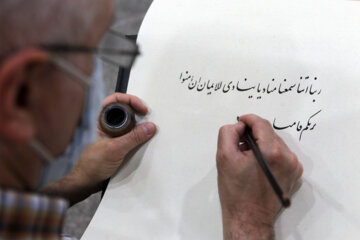 ربنا اننا سمعنا منادیا ینادی للایمان ان امنوا
بربکم فامنا